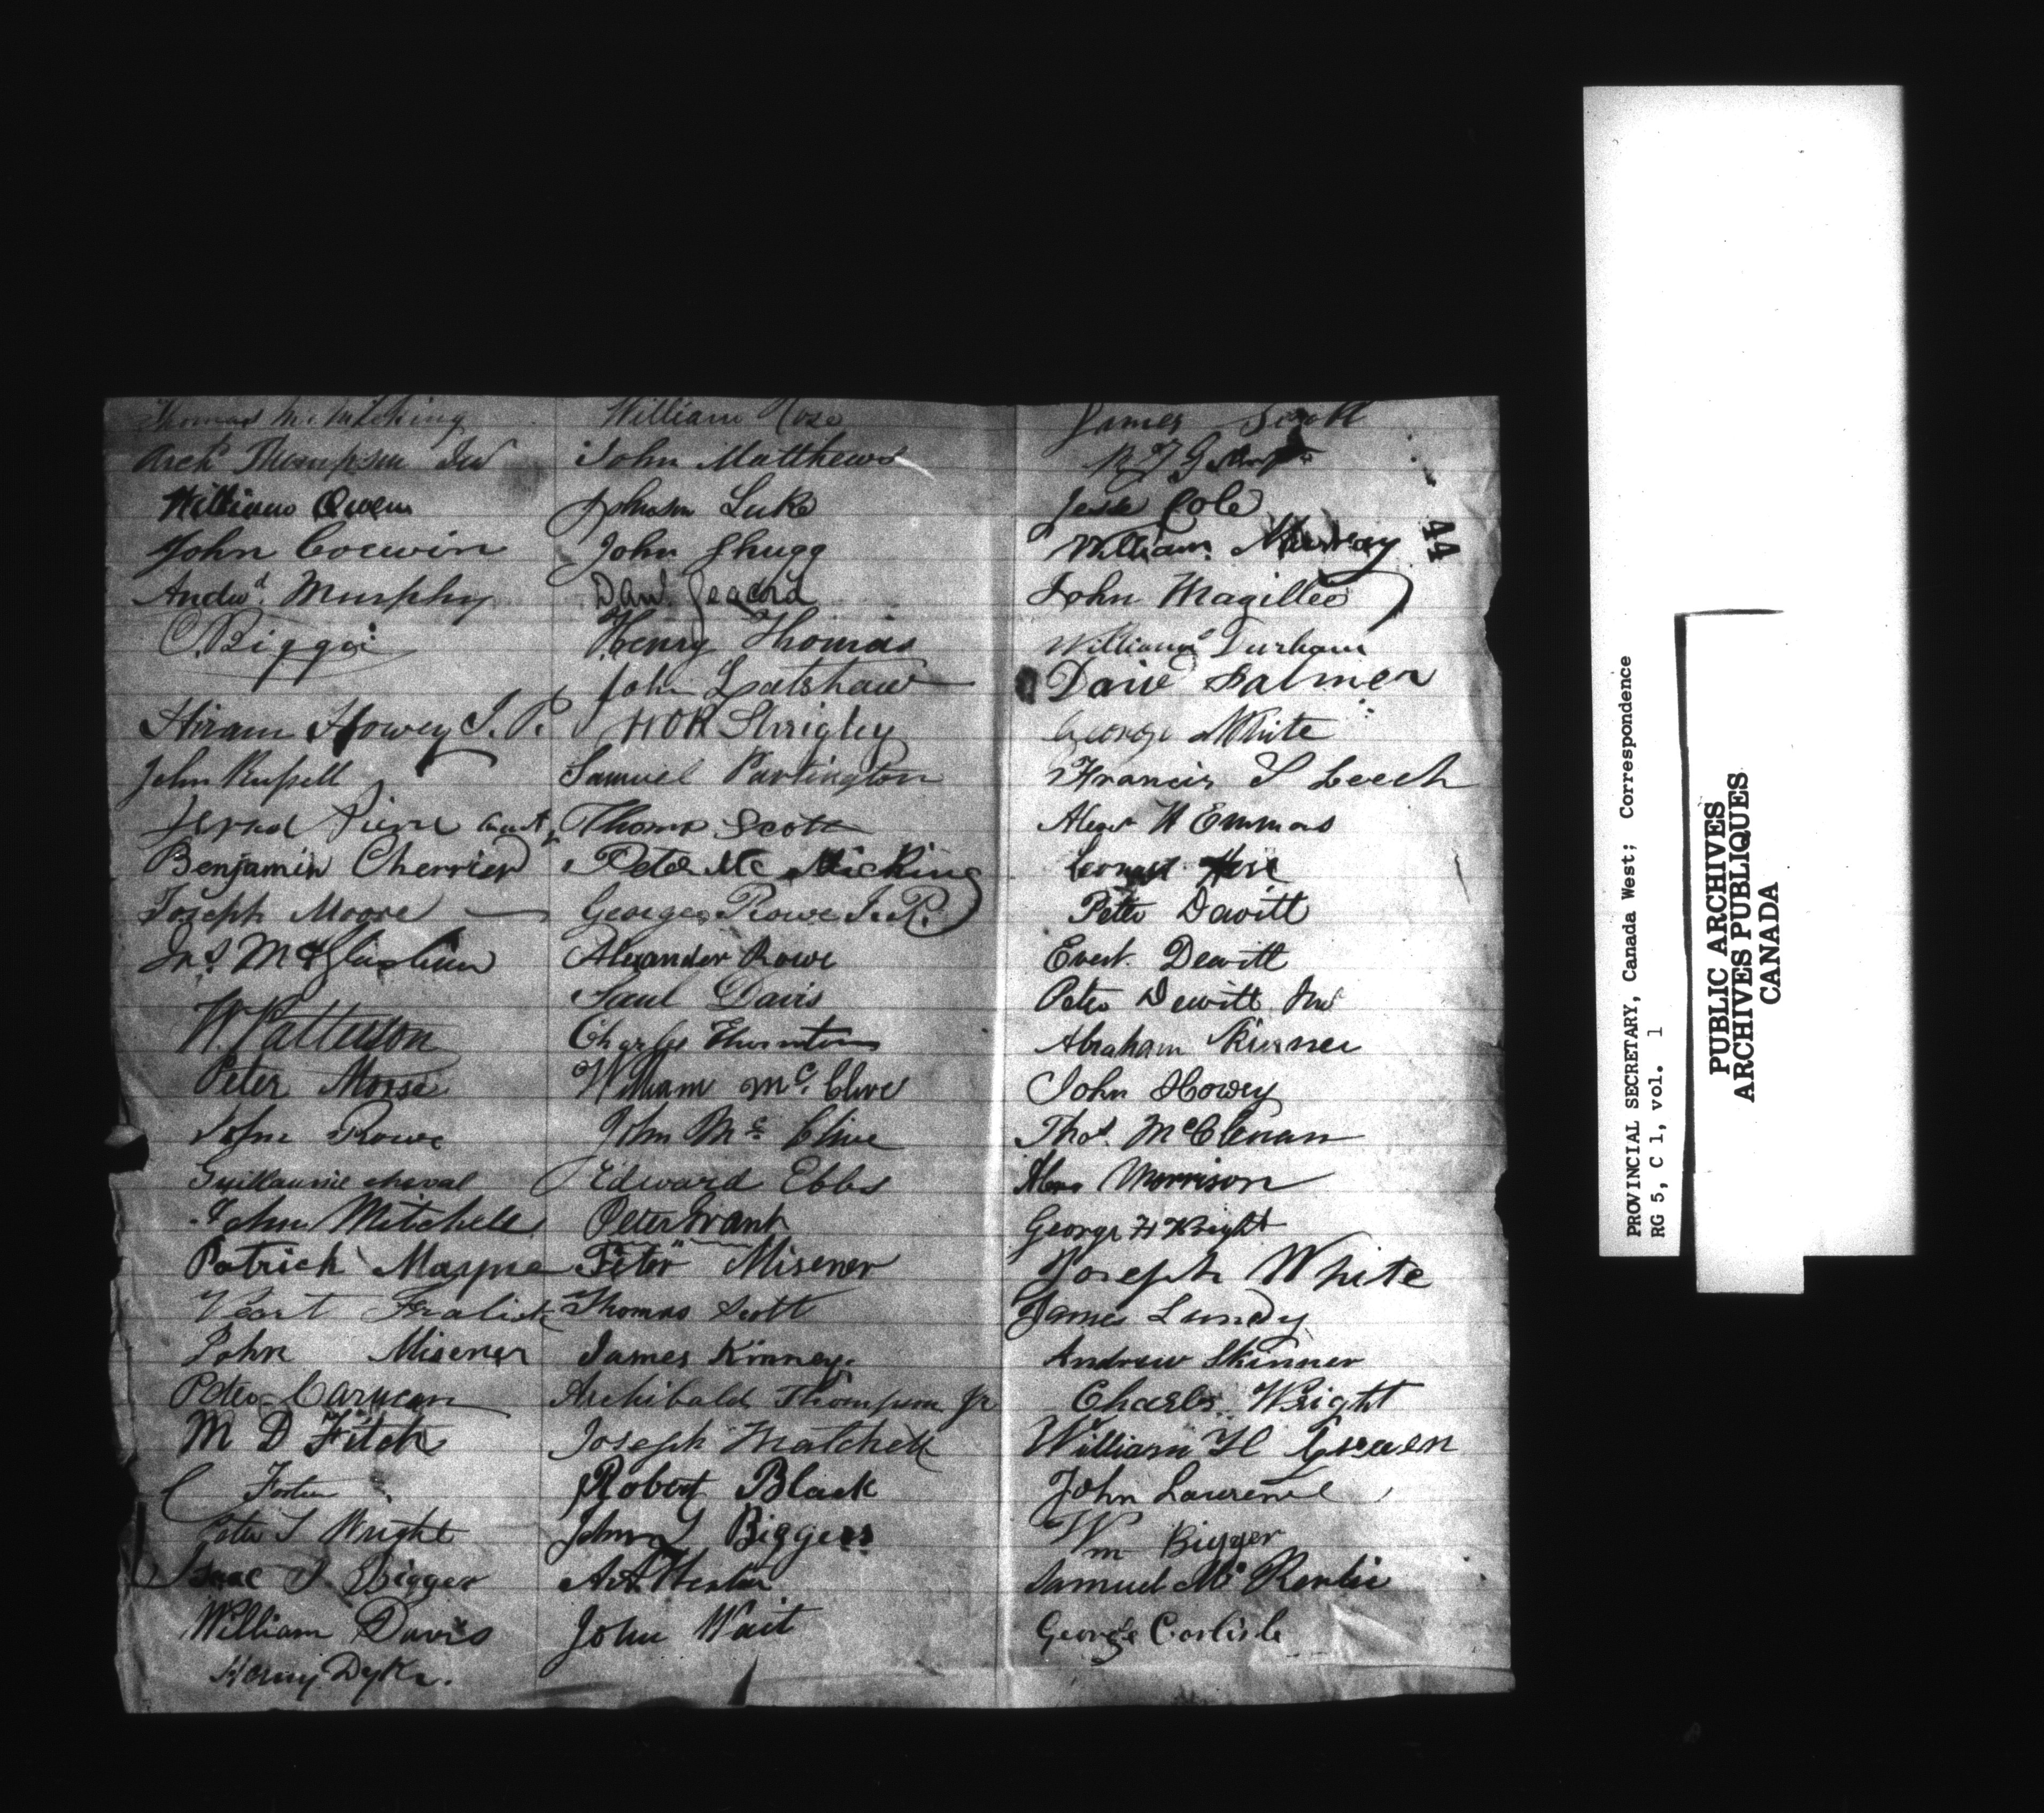 Thomas McMicking
Archd Thompson Jnr
William Owen
John Corwin
Andw. Murphy
C. Bigger
Hiram Howey J.P.
John Russell
Pierre
Benjamin Cherrier
Joseph Moore
Jas. McGlashan
W. Patterson
Peter Morse
John Rowe
Guillaume cheval
John Mitchell
Patrick Mayne
John Misener
Peter
M D Fitch
C Foster
Peter S Wright
Isaac J Bigger
William Davis
Henry Dyke.
William Rose
John Matthews
Johnson Luke
John Shugg
Danl.
Henry Thomas
John Latshaw
HOR Shrigley
Samuel Partington
Thoms Scott
Peter Mc Micking
George Rowe J.P.
Alexander Rowe
Saul Davis
Charles Thornton
William Mc. Clive
John Mc Clive
Edward Ebbs
Peter Grant
Peter Misener
Thomas Scott
James Kinney.
Archibald Thompson Jr
Joseph Matchett
Robert Black
John Biggers
John Wait
James Scott
Jesse Cole
William Murray
John Magillee
William Durham
Palmer
George White
Francis S Leech
Alexr W Emmons
Peter Dewitt
Evert Dewitt
Peter Dewitt Jnr
Abraham
John Howey
Thos. McClenan
Alexr Morrison
George H Wright
Joseph White
James Lundy
Andrew Skinner
Charles Wright
William H
John Lawrence
Wm Bigger
Samuel Mc
George Carlisle
44
PROVINCIAL SECRETARY, Canada West; Correspondence
RG 5, C 1, vol. 1
PUBLIC ARCHIVES
ARCHIVES PUBLIQUES
CANADA